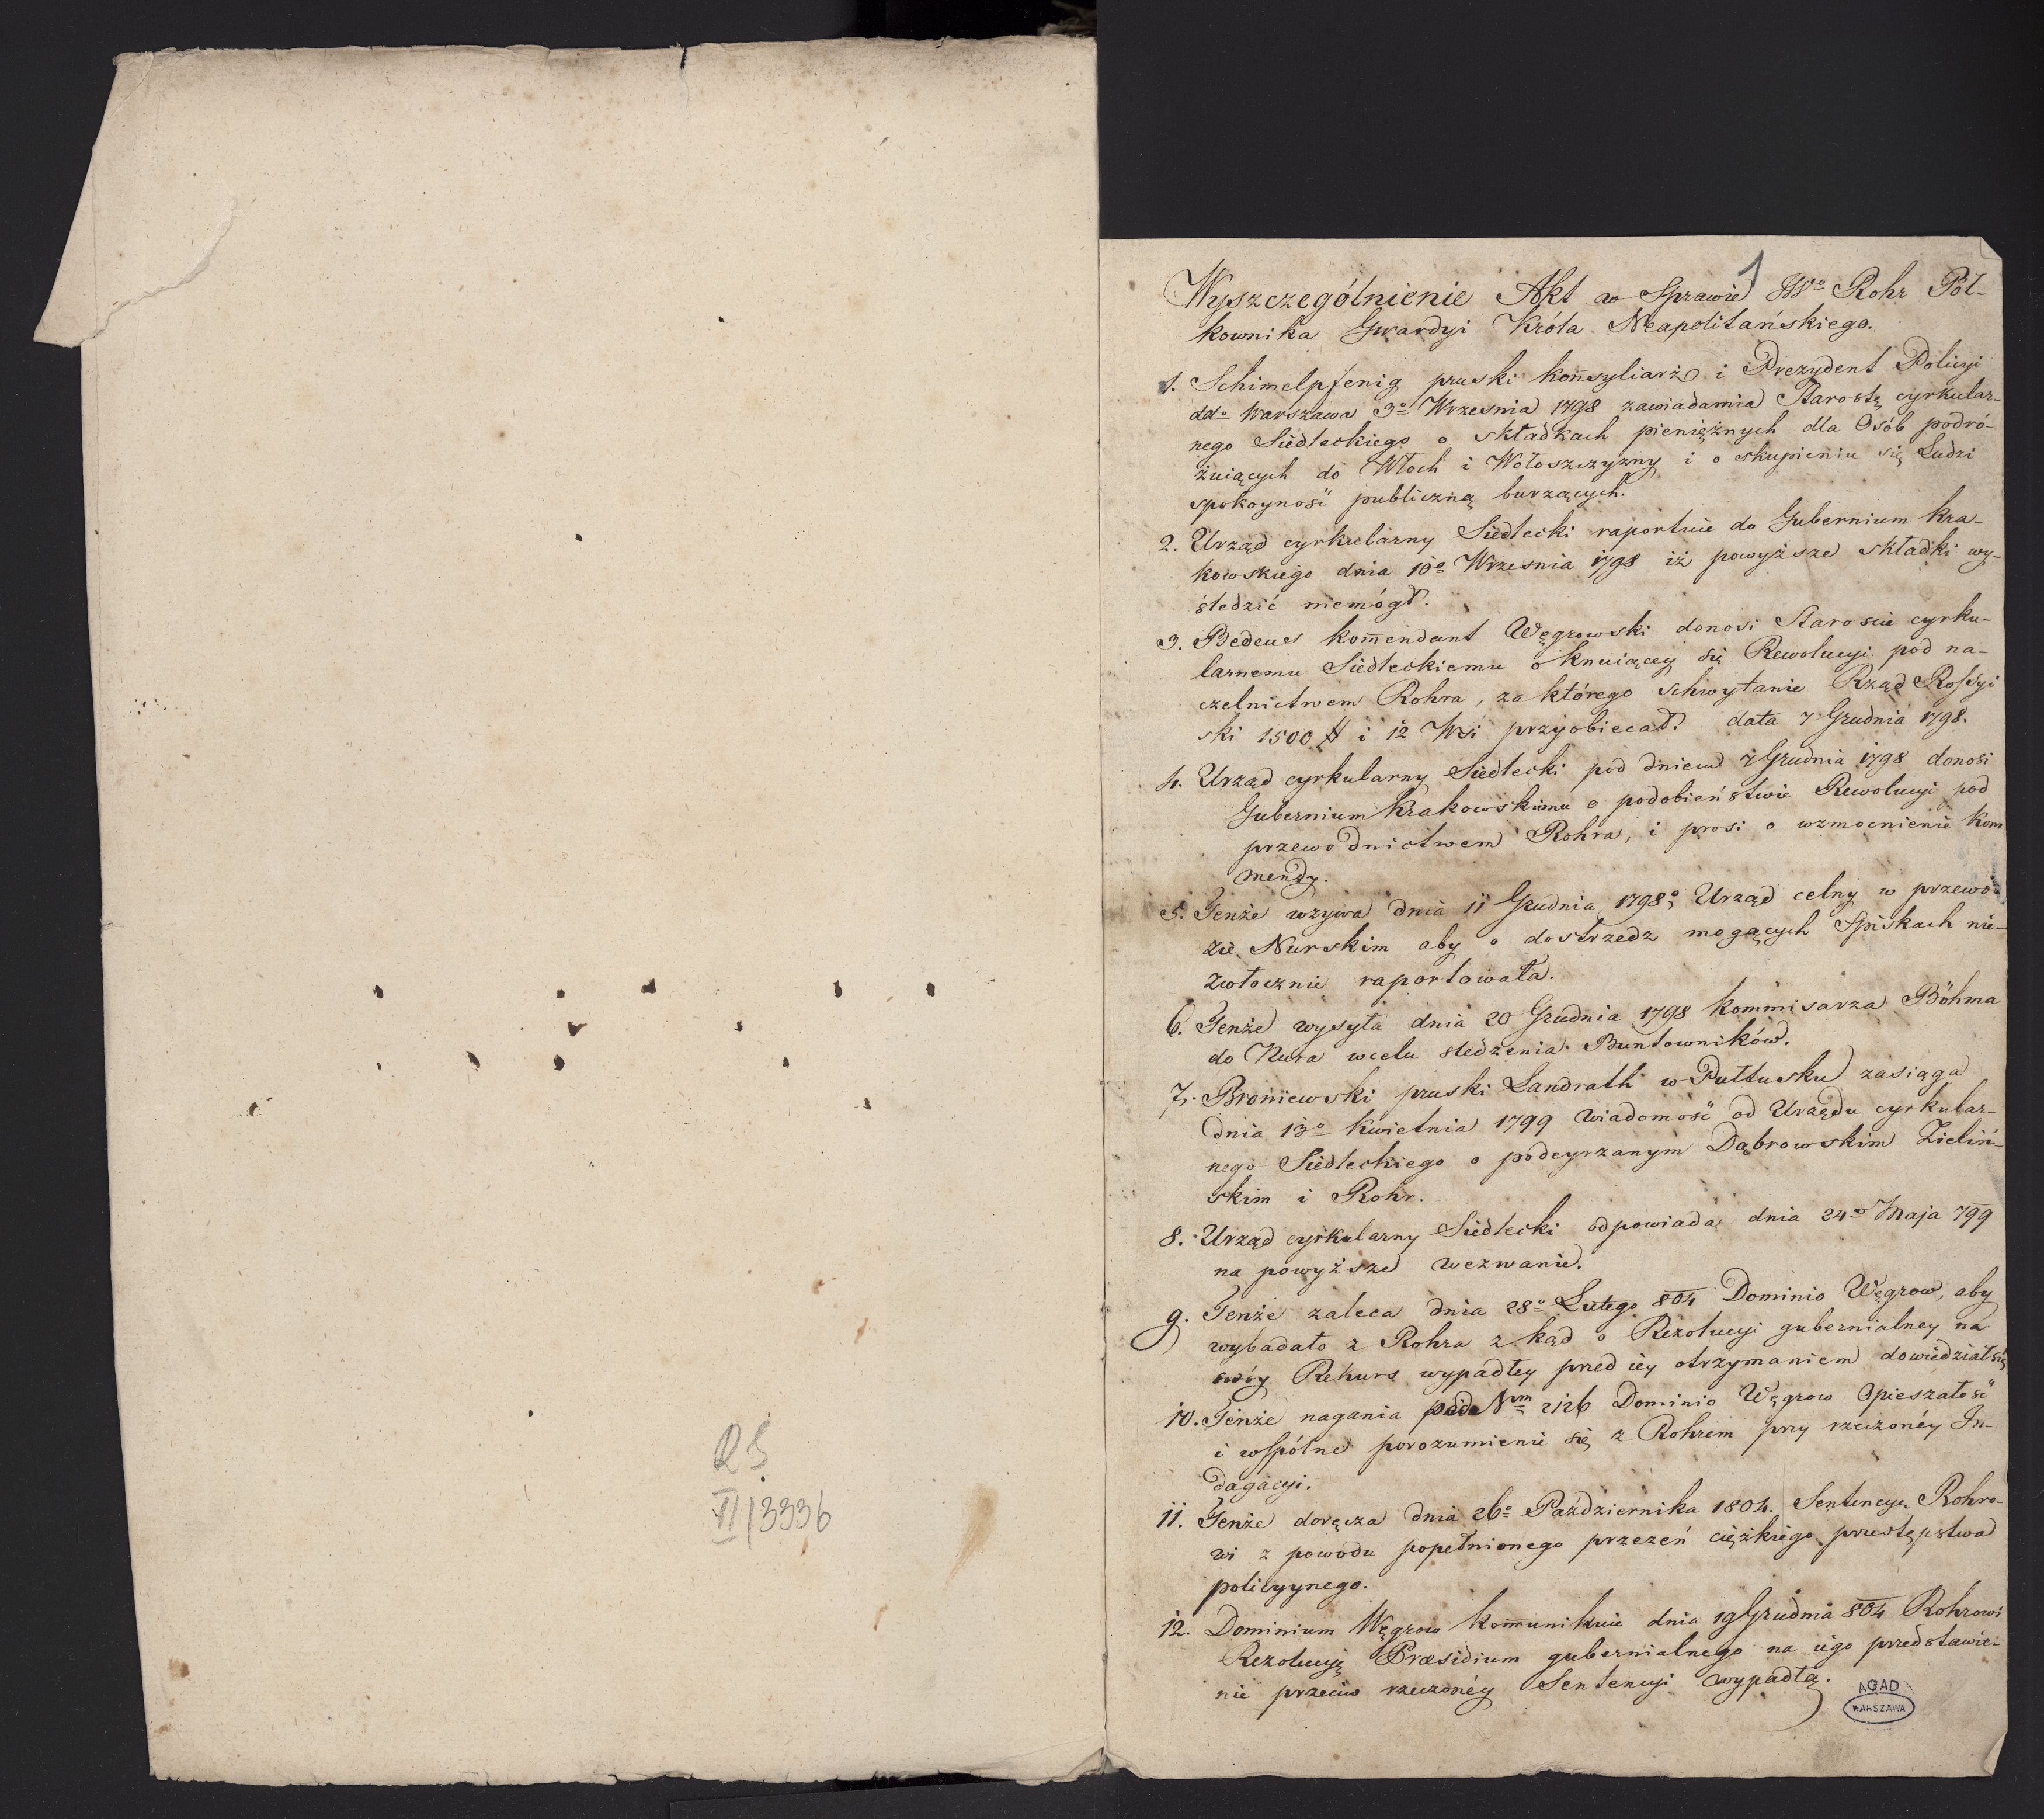 RS
II/3336
1
Wyszczególnienie Akt w Sprawie JWo Rohr Puł-
kownika Gwardyi Króla Neapolitańskiego.
1. Schimelpfenig pruski konsyliarz i Prezydent Policyi
ddo Warszawa 3o Wrzesnia 1798 zawiadamia Starostę cyrkular-
nego Siedleckiego o składkach pieniężnych dla Osób podró-
żuiących do Włoch i Wołoszczyzny i o skupieniu się Ludzi
spokoyność publiczną burzących.
2. Urząd cyrkularny Siedlecki raportuie do Gubernium kra-
kowskiego dnia 10o Wrzesnia 1798 iż powyższe składki wy-
śledzić niemógł.
3. Bedeus komendant Węgrowski donosi Staroscie cyrku-
larnemu Siedleckiemu o knuiącey się Rewolucyi pod na-
czelnictwem Rohra, za którego schwytanie Rząd Rossyi
ski 1500 # i 12 Wsi przyobiecał. data 7 Grudnia 1798.
4. Urząd cyrkularny Siedlecki pod dniem 7 Grudnia 1798 donosi
Gubernium Krakowskimu o podobieństwie Rewolucyi pod
przewodnictwem Rohra, i prosi o wzmocnienie kom
mendy.
5. Tenże wzywa dnia 11 Grudnia 1798o Urząd celny w przewo-
zie Nurskim aby o dostrzedz mogących Spiskach nie-
zwłocznie raportowała.
6. Tenże wysyła dnia 20 Grudnia 1798 kommisarza Böhma
do Nura wcelu sledzenia Buntowników.
7. Broniewski pruski Landrath w Pułtusku zasiąga
dnia 13o kwietnia 1799 wiadomość od Urzędu cyrkular-
nego Siedleckiego o podeyrzanym Dąbrowskim Zieliń-
skim i Rohr.
8. Urząd cyrkularny Siedlecki odpowiada dnia 24o Maja 799
na powyższe wezwanie.
9. Tenże zaleca dnia 28o Lutego 804 Dominio Węgrow, aby
wybadało z Rohra z kąd o Rezolucyi gubernialney na
swóy Rekurs wypadłey przed iey otrzymaniem dowiedział się
10. Tenże nagania pod Nrm 2126 Dominio Węgrow Opieszałość
i wspólne porozumienie się z Rohrem przy rzeczonéy In-
dagacyi.
11. Tenże doręcza dnia 26o Października 1804. Sentencyą Rohro-
wi z powodu popełnionego przezeń ciężkiego przestępstwa
policyynego.
12. Dominium Węgrow komunikuie dnia 19 Grudnia 804 Rohrowi
Rezolucyą Præsidium gubernialnego na iego przedstawie-
nie przeciw rzeczonéy Sentencyi wypadłą.
AGAD
WARSZAWA